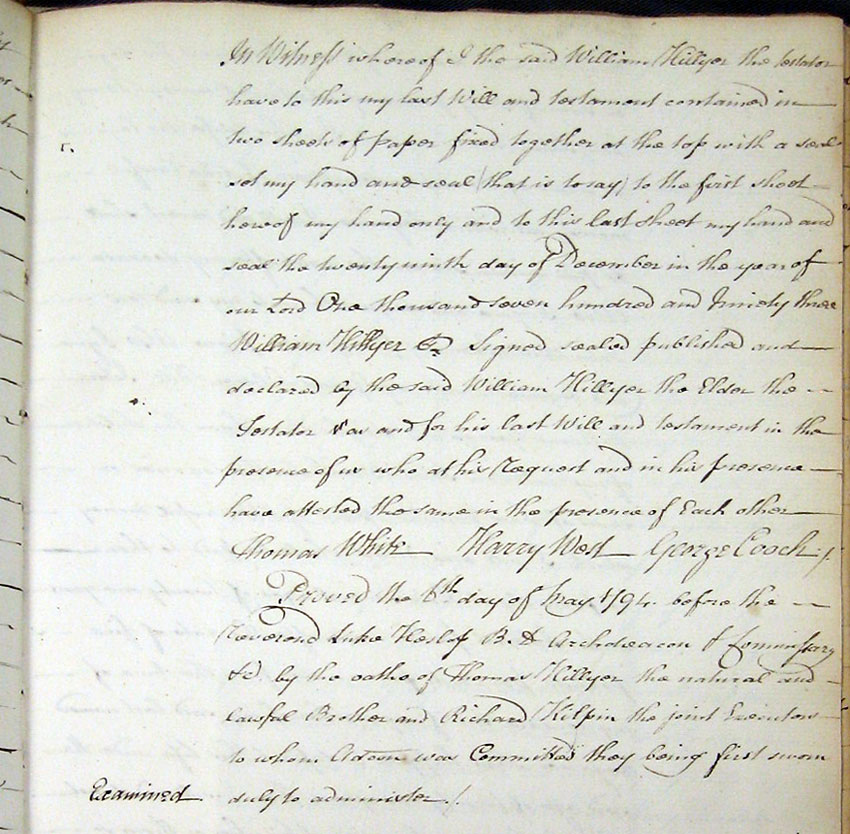 In Witness whereof I the said William Hillyer the testator
have to this my last Will and testament contained in
two sheets of paper fixed together at the top with a seal
set my hand and seal (that is to say) to the first sheet
hereof my hand only and to this last sheet my hand and
seal the twenty ninth day of December in the year of
our Lord One thousand seven hundred and Ninety three
William Hillyer Signed sealed published and
declared by the said William Hillyer the Elder the
Testator as and for his last Will and testament in the
presence of us who at his Request and in his presence
have attested the same in the presence of Each other
Thomas White Harry West George Cooch
Proved the 6th day of May 1794. before the
Reverend Luke Heslop B. D Archdeacon & Commissary
&c. by the oaths of Thomas Hillyer the natural and
lawful Brother and Richard Kilpin the joint Executors
to whom Adcon was Committed they being first sworn
Examined duly to administer